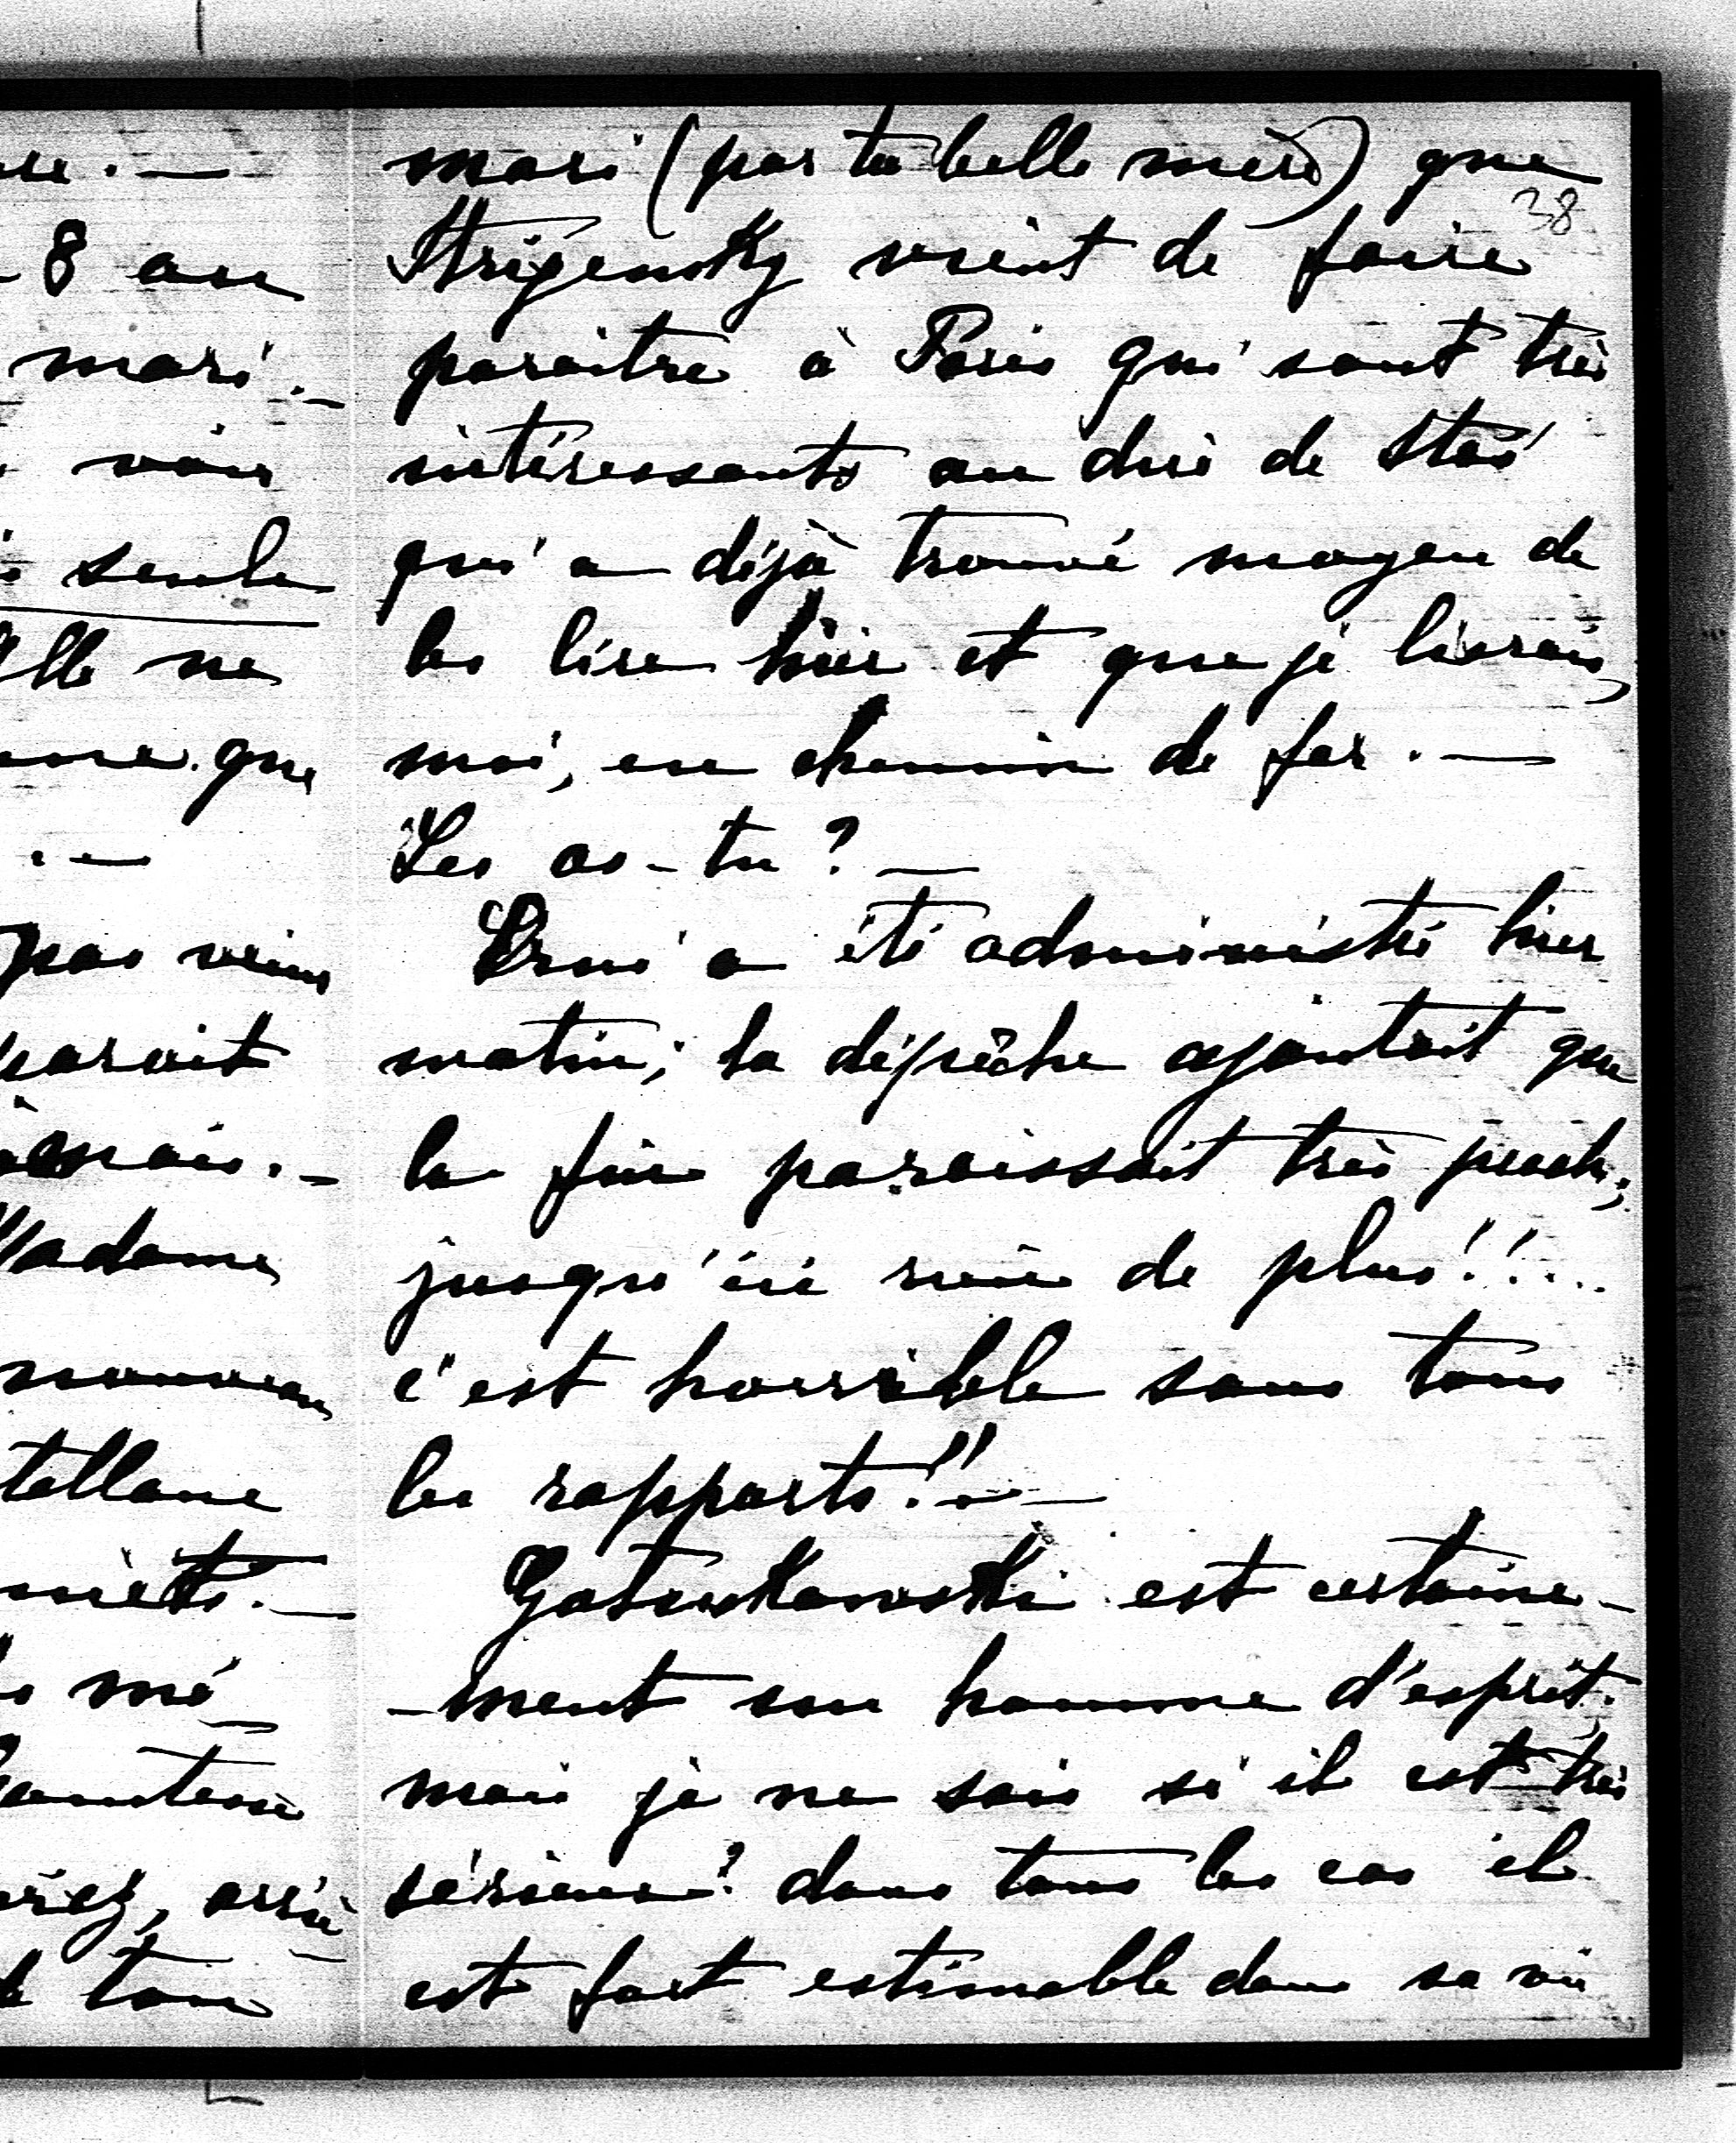 8 au
mari. —
voir
seule
elle ne
que
. —
pas venir
parait
Madame
nouveau
tellane
mé_
ton
38
mari (par ta belle mère) que
Strigensky vient de faire
paraitre à Paris qui sont très
intéressants au dire de Staś
qui a déjà trouvé moyen de
les lire hier et que je lirais,
moi, en chemin de fer. —
Les as-tu? —
Erni a été administré hier
matin; la dépêche ajoutait que
la fin paraissait très proch;
jusqu'ici rien de plus!!...
c'est horrible sous tous
les rapports!! —
est certaine-
-ment un homme d'esprit.
mais je ne sais si il est très
sérieux? dans tous les cas il
est fort estimable dans sa vie